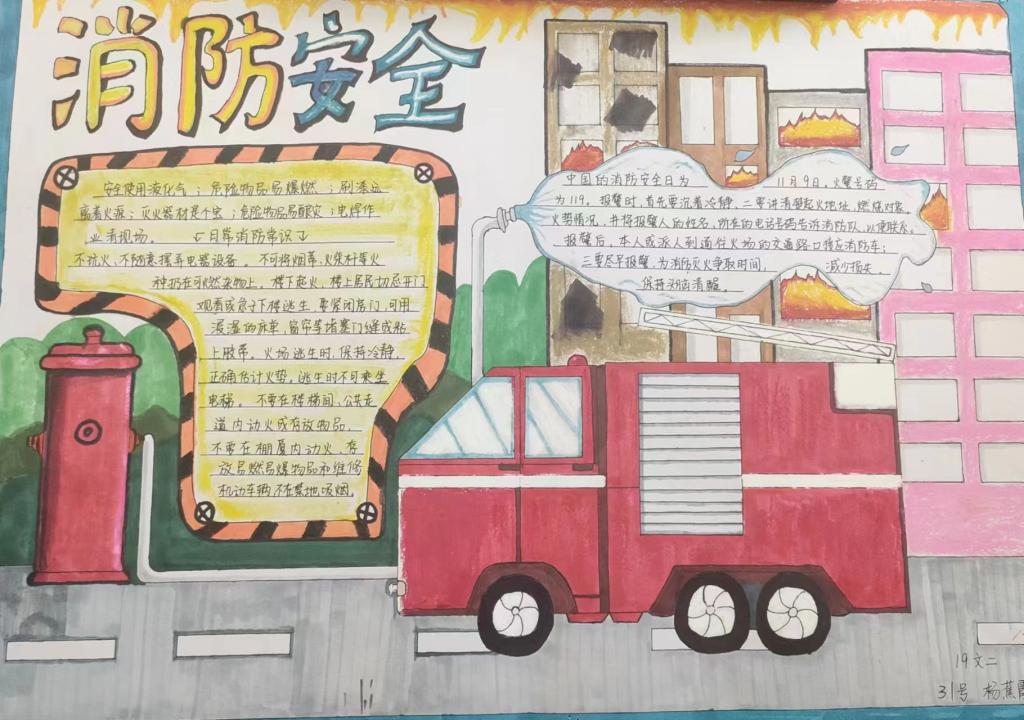 消防安全
安全使用液化气；危险物品易爆燃；剧漆运
离着火源；灭火器材是个宝；危险物品易酿灾；电焊作
业看现场。 ↙日常消防常识↘
不玩火、不随意摆弄电器设备。不可将烟蒂、火柴杆等火
种扔在可燃杂物上，楼下起火，楼上居民切忌开门
观看或急于下楼逃生，要紧闭房门，可用
浸湿的床单，窗帘等堵塞门缝或粘
上胶带。火场逃生时，保持冷静，
正确估计火势，逃生时不可乘坐
电梯。不要在楼梯间，公共走
道内动火或存放物品，
不要在棚厦内动火、存
放易燃易爆物品和维修
机动车辆，不在禁地吸烟。
中国的消防安全日为 11月9日，火警号码
为119。报警时，首先要沉着冷静，二要讲清楚起火地址，燃烧对象，
火势情况，并将报警人的姓名，所在的电话号码告诉消防队，以便联系。
报警后，本人或派人到通往火场的交通路口接应消防车；
三要尽早报警，为消防灭火争取时间， 减少损失。
保持头脑清醒。
19文二
31号 杨蕉